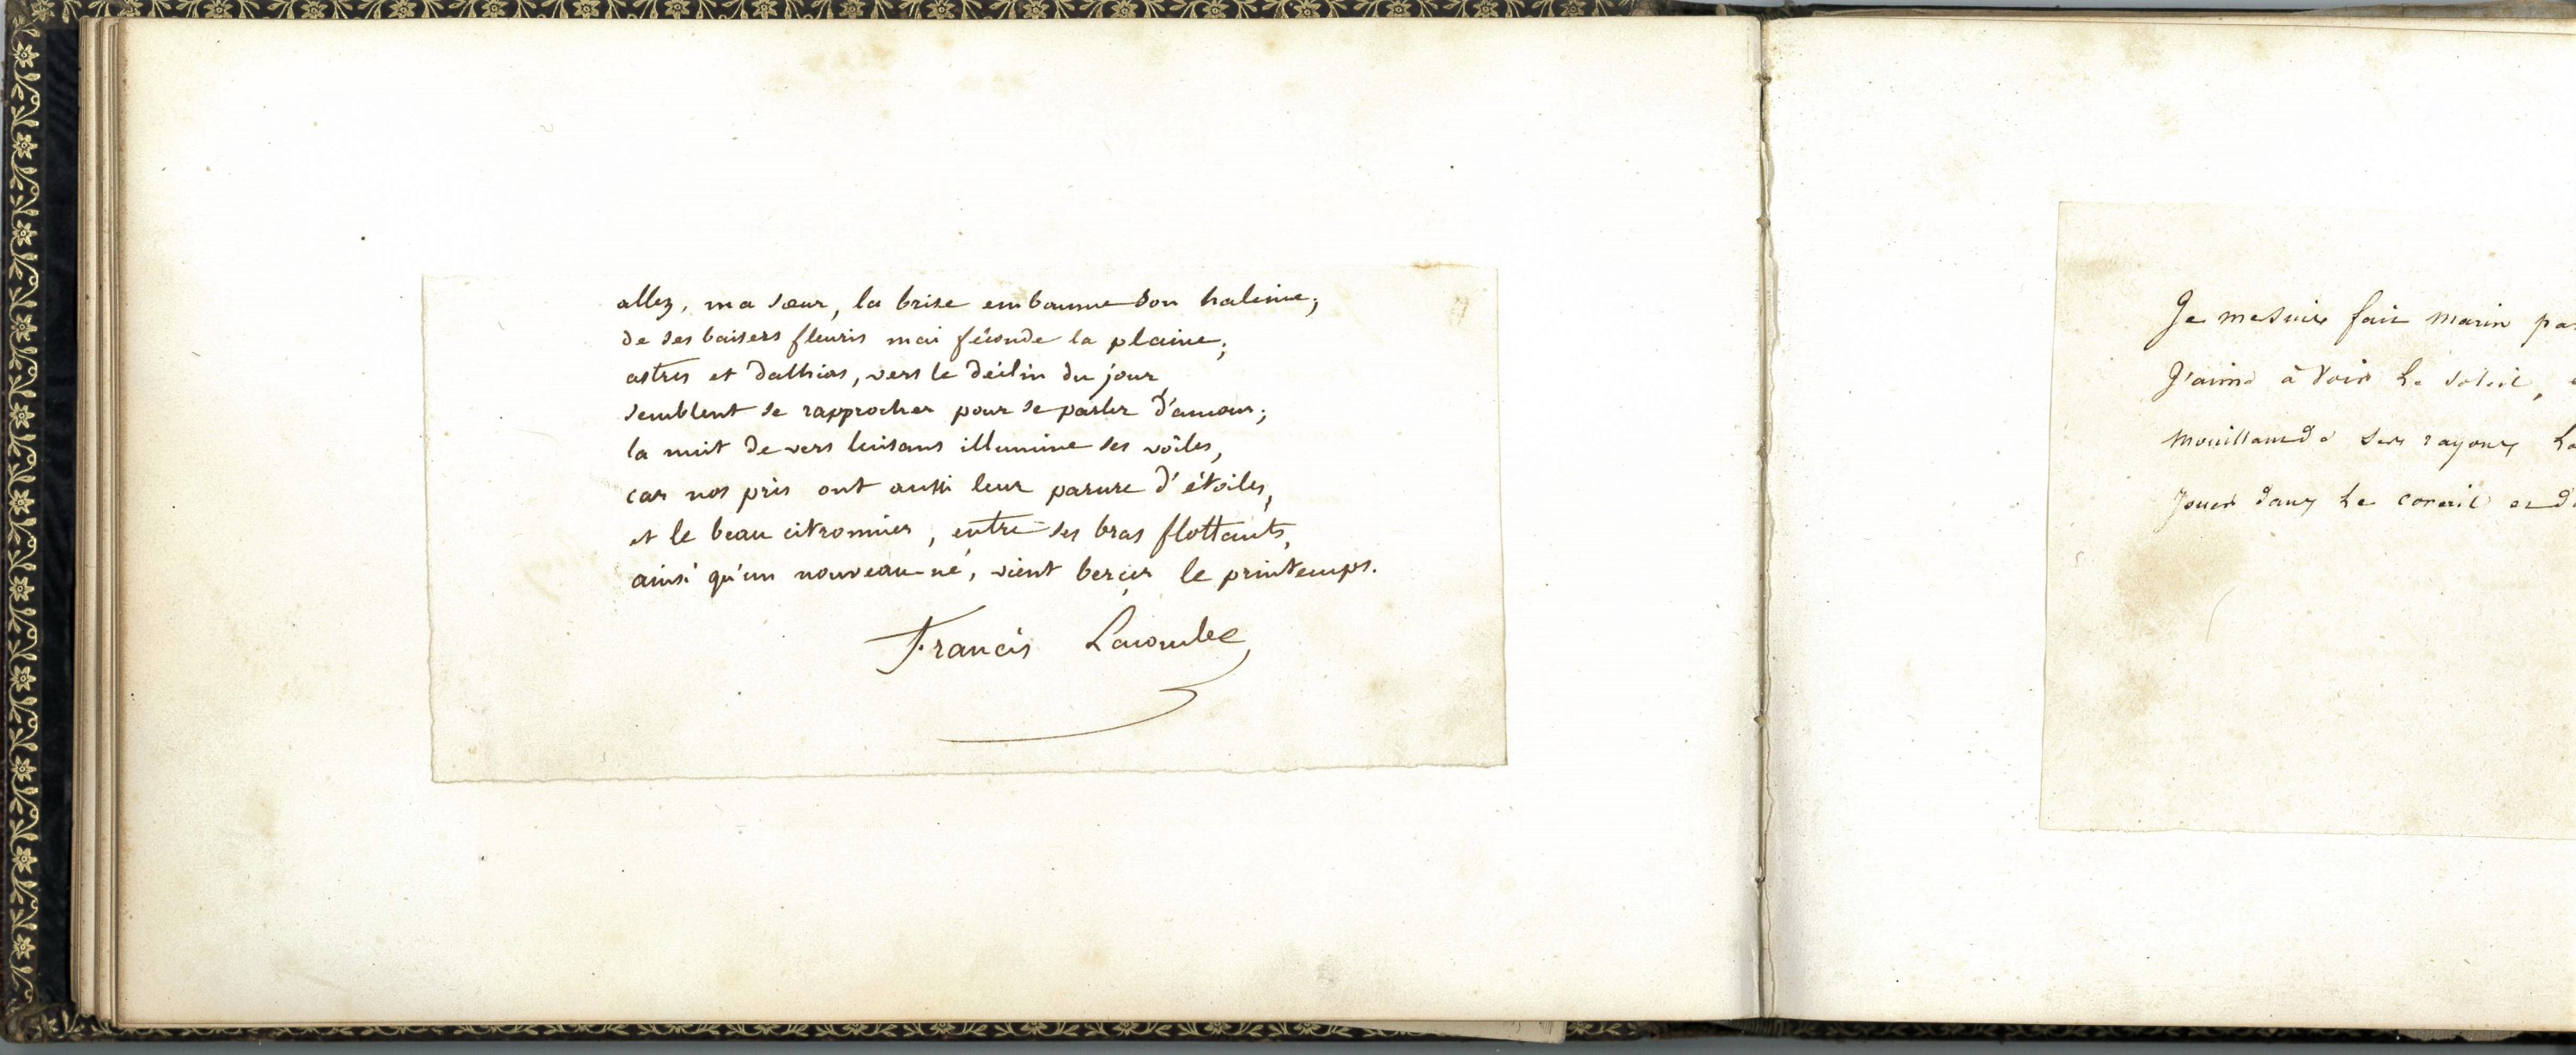 allez, ma sœur, la brise embaume son haleine;
de ses baisers fleuris mai féconde la plaine;
astres et dalhias, vers le déclin du jour,
semblent se rapprocher pour se parler d'amour;
la nuit de vers luisans illumine ses voîles,
car nos prés ont aussi leur parure d'étoiles,
et le beau citronnier, entre ses bras flottants,
ainsi qu'un nouveau-né, vient bercer le printemps.
Francis Lacombe
Je me suis fait marin
J'aime à voir le soleil,
mouillant de ses rayons
Jouer dans le corail et